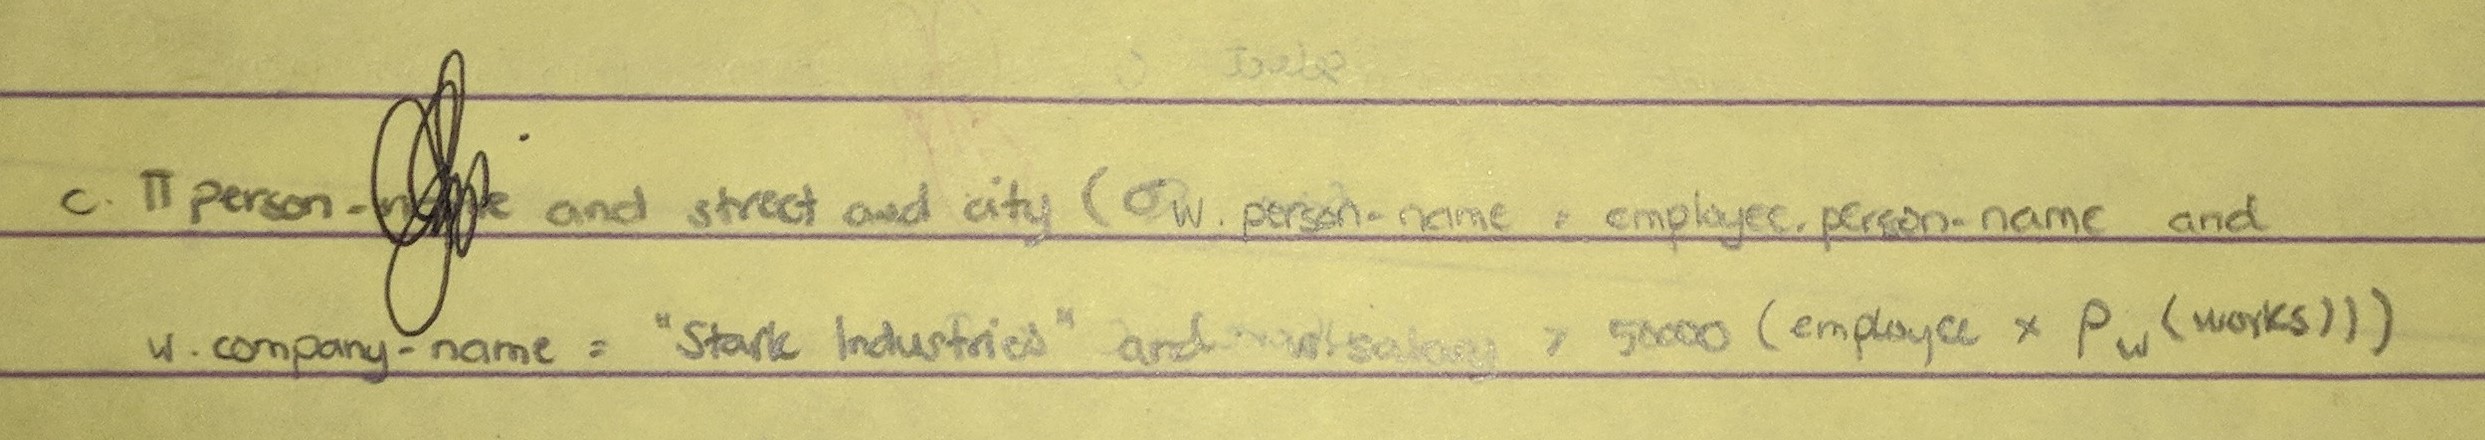 c. π person-name and street and city (σ w.person-name = employee.person-name and
w.company-name = "Stark Industries" and w.salary > 50000 (employee x ρw(works)))